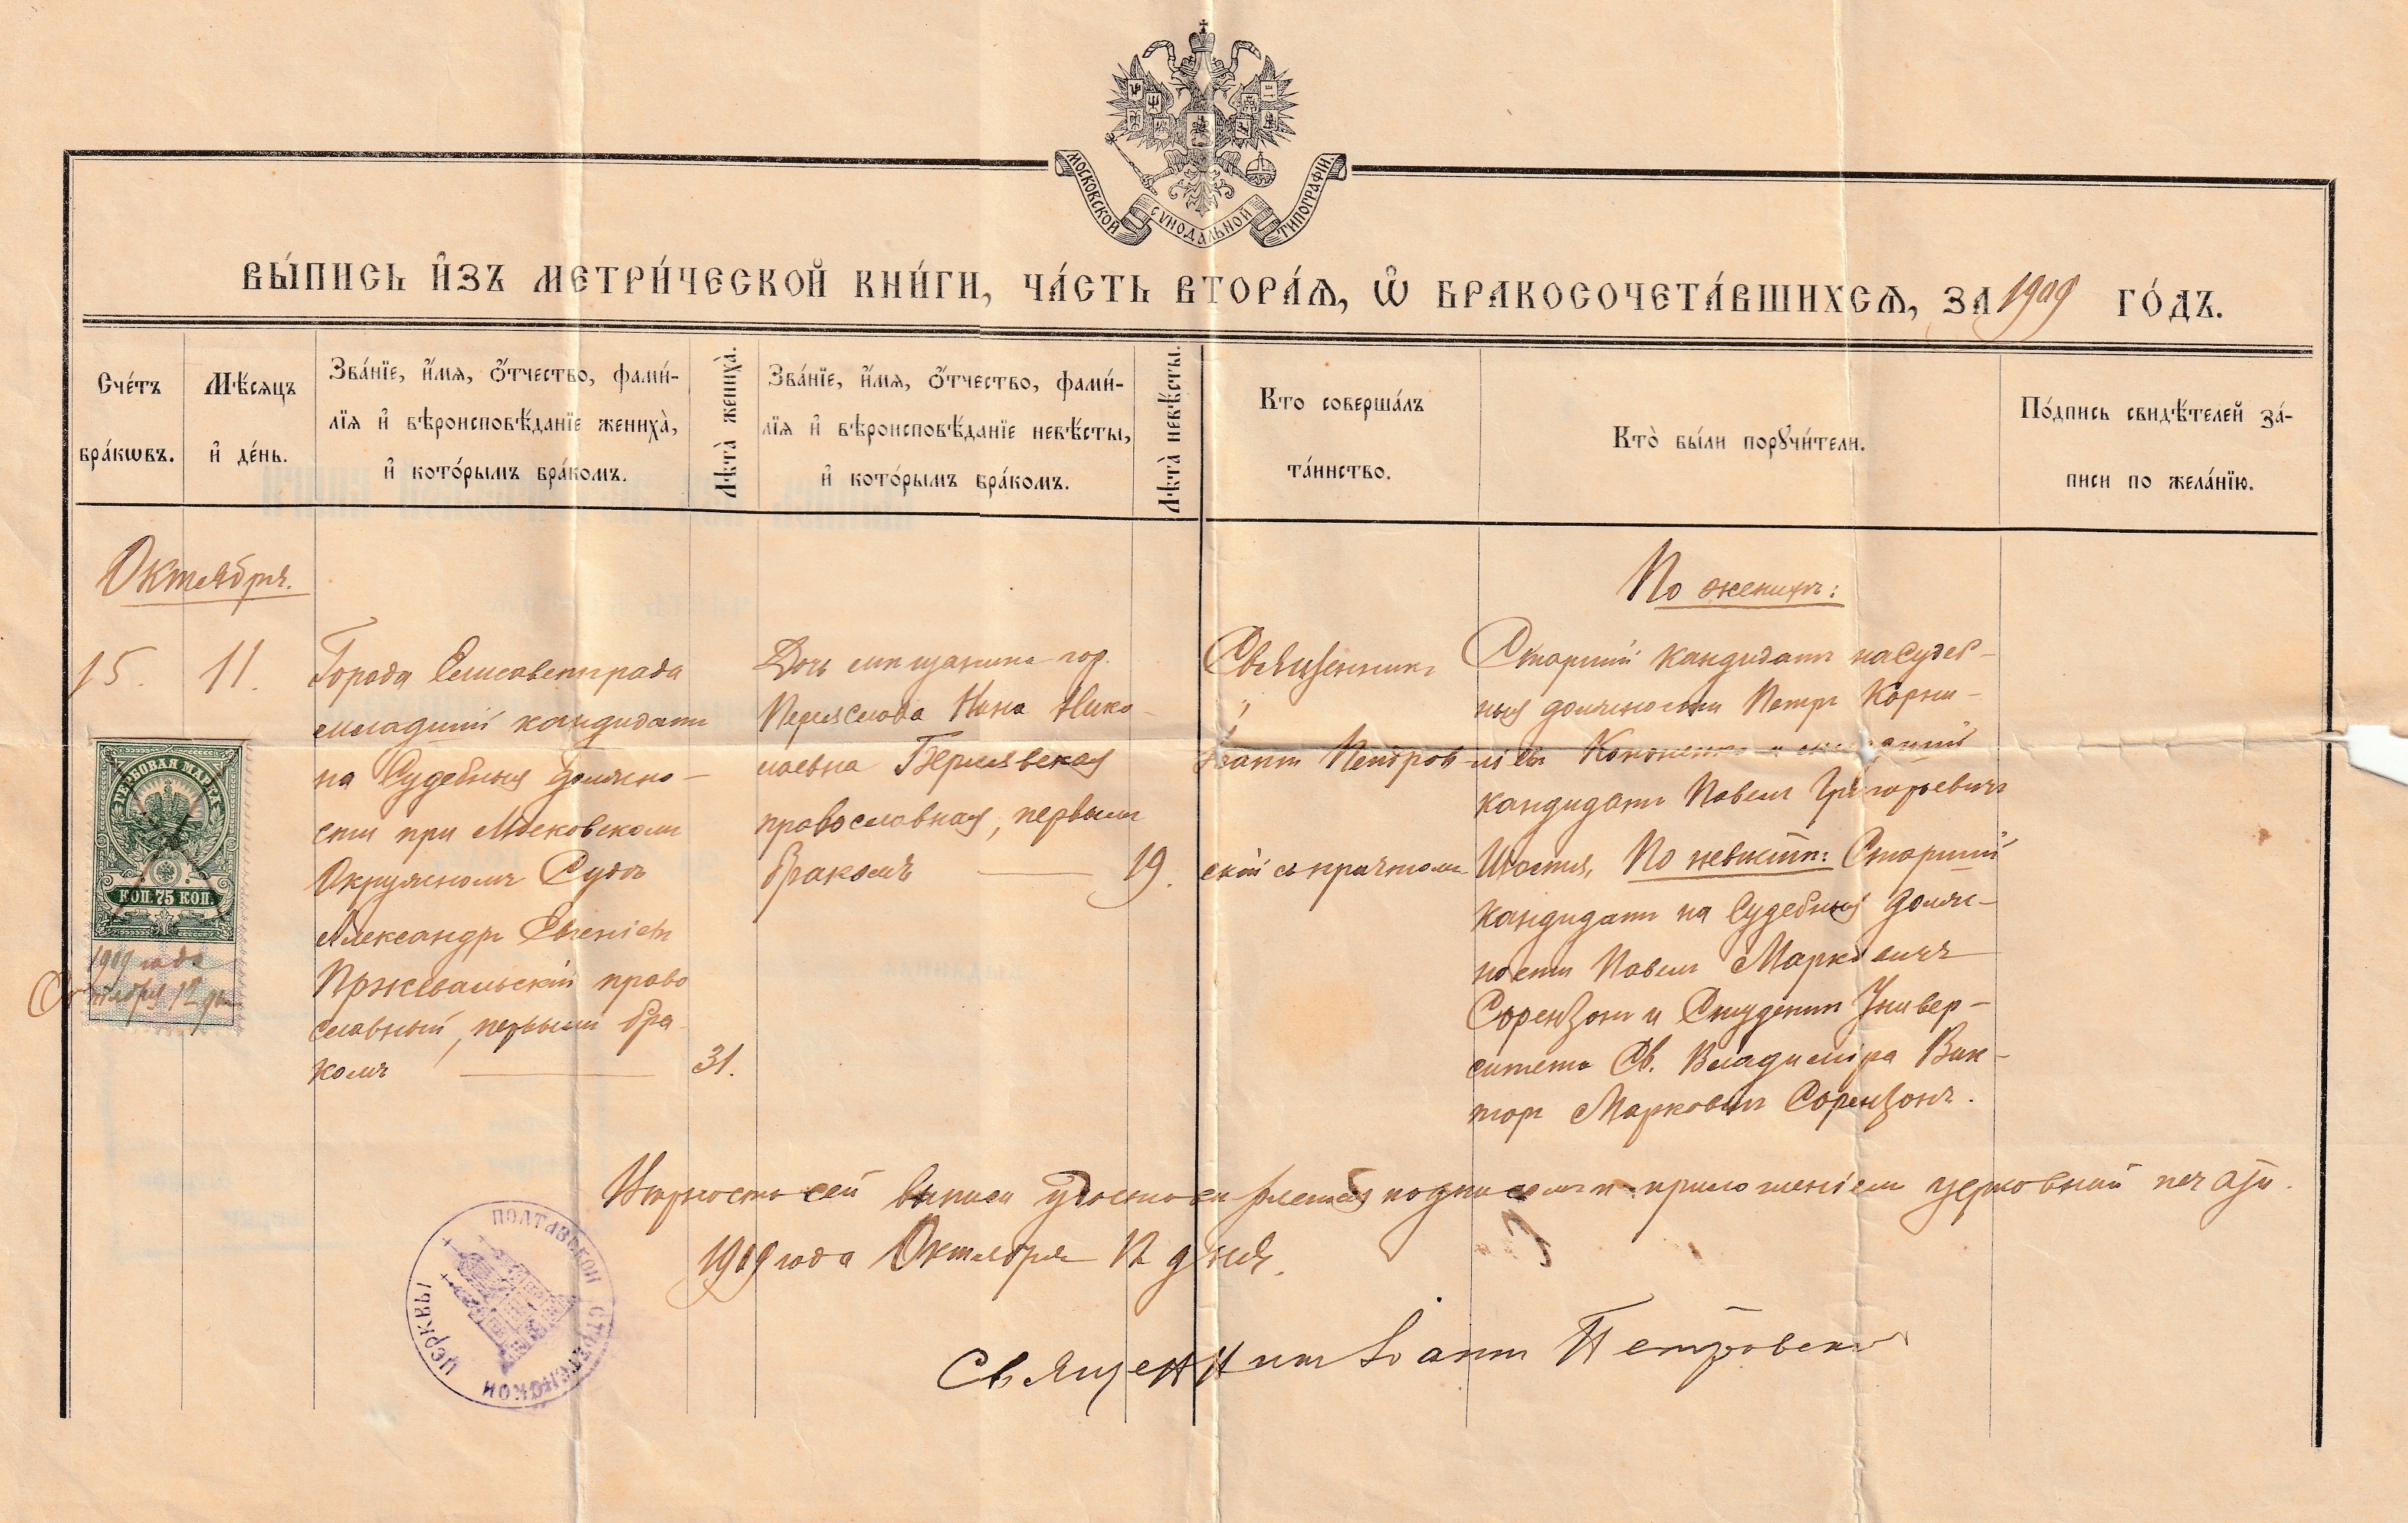 МОСКОВСКОЙ СѴНОДАЛЬНОЙ ТИПОГРАФІИ.
ВЫ́ПИСЬ И҆ЗЪ МЕТРИ́ЧЕСКОЙ КНИ́ГИ, ЧА́СТЬ ВТОРА́Ѧ, Ѽ БРАКОСОЧЕТА́ВШИХСѦ, ЗА 1909 ГО́ДЪ.
Сче́тъ
бра́кѡвъ.
Мѣ́сяцъ
и҆ де́нь.
Зва́нїе, и҆́мѧ, ѻ҆́тчество, фами́-
лїѧ и҆ вѣроисповѣ́данїе жениха̀,
и҆ кото́рымъ бра́комъ.
Лѣта̀ жениха̀.
Зва́нїе, и҆́мѧ, ѻ҆́тчество, фами́-
лїѧ и҆ вѣроисповѣ́данїе невѣ́сты,
и҆ кото́рымъ бра́комъ.
Лѣта̀ невѣ́сты.
Кто совершáлъ
та́инство.
Кто̀ бы́ли порꙋчи́тели.
По́дпись свидѣ́телей за́-
писи по жела́нїю.
Октября.
15.
11.
Города Елисаветграда
младшій кандидатъ
на Судебныя должно-
сти при Московскомъ
Окружномъ Судѣ
Александръ Евгеніевъ
Пржевальскій право
славный, первымъ бра
комъ
31.
Дочь мѣщанина гор.
Переяслова Нина Нико-
лаевна
православная, первымъ
бракомъ
19.
Священникъ
Іоаннъ Петров-
скій съ причтомъ
По женихѣ:
Старшій кандидатъ на Судеб-
ныя должности Петръ Корни-
ліевъ Кононенко и младшій
кандидатъ Павелъ Григорьевичъ
По невѣстѣ: Старшій
кандидатъ на Судебныя долж-
ности Павелъ Марковичъ
Сорензонъ и Студентъ Универ-
ситета Св. Владиміра Вик-
торъ Марковичъ Сорензонъ.
ГЕРБОВАЯ МАРКА
КОП. 75 КОП.
1909 года
Октября 12 дня
Вѣрность сей выписи удостовѣряется подписомъ и приложеніемъ церковной печати.
1909 года Октября 12 дня.
Священникъ Іоаннъ Петровскій
ПОЛТАВСКОЙ СТРѢТЕНСКОЙ ЦЕРКВИ